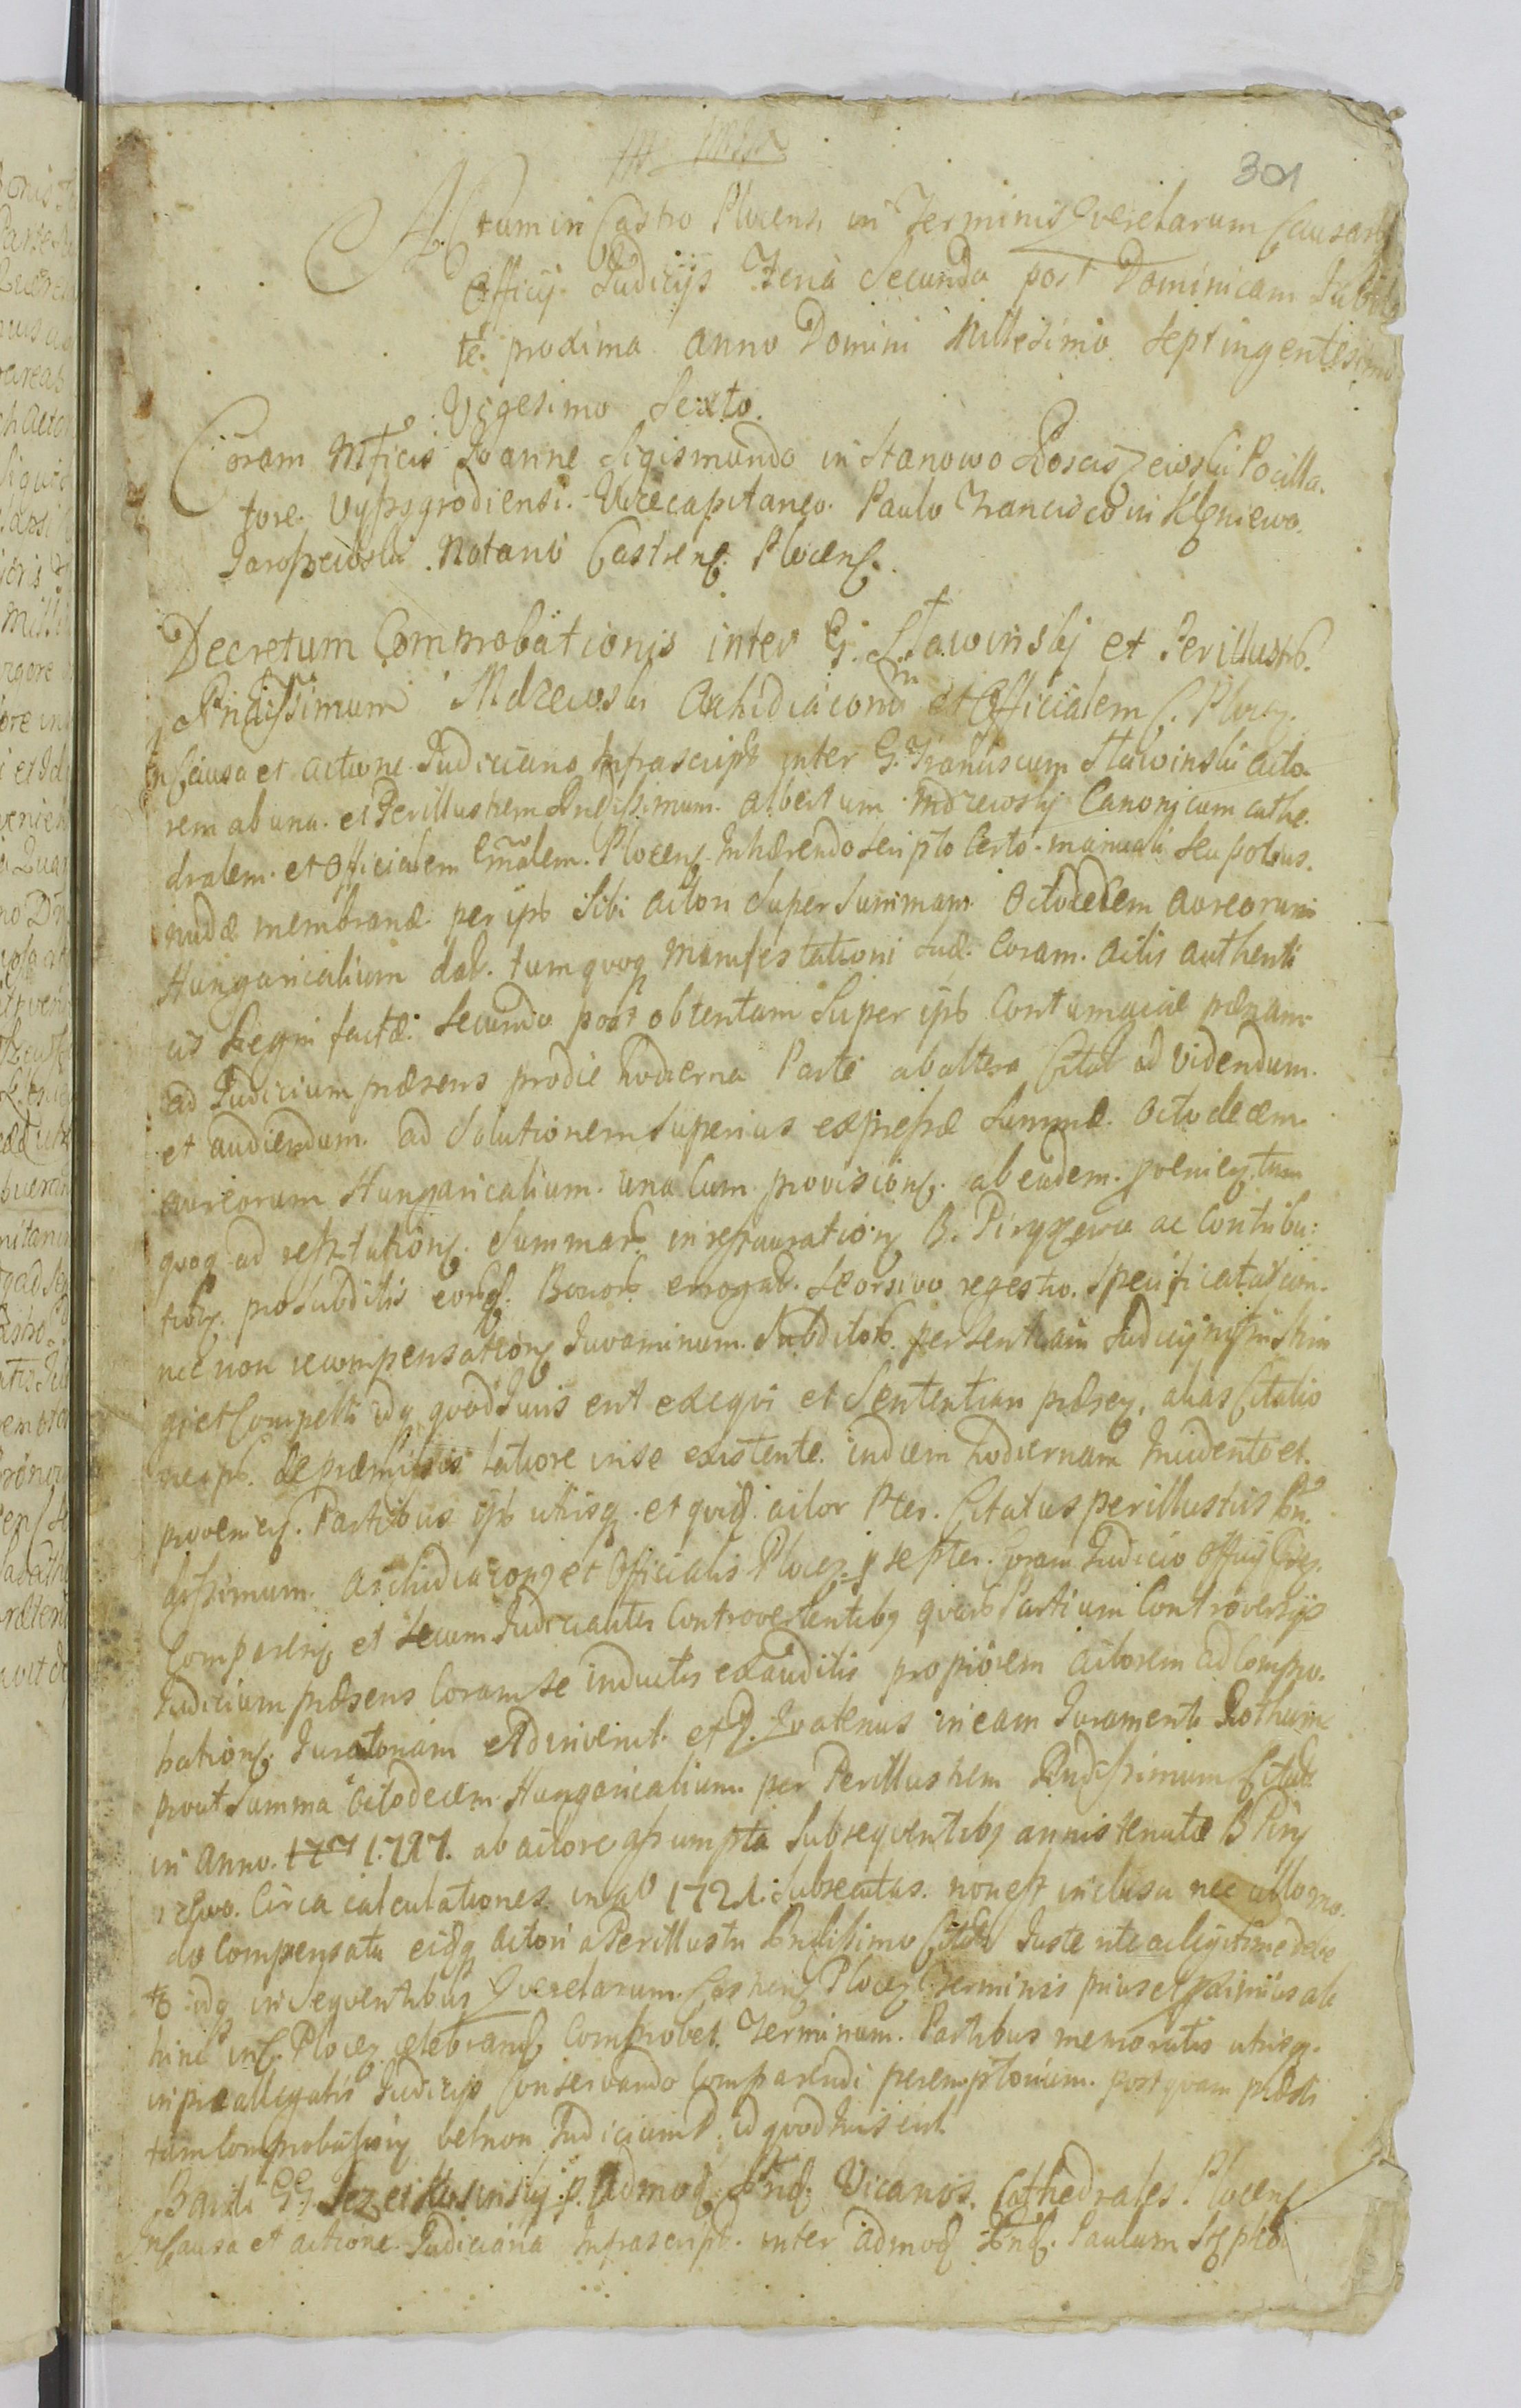 301
Actum in Castro Plocensi in Terminis Querelarum Causarum
Officij Judicijs Feria Secunda post Dominicam Jubila
te proxima anno Domini Millesimo Septingentesimo
Vigesimo Sexto.
Coram Mficis Joanne Sigismundo in Stanowo Poscis zewski Pocilla.
tore Vyszogrodiensi. Vicecapitaneo. Paulo Francisco in Kleniewo
Jaroszewski. Notario Castrens. Plocens.
Decretum Comprobationis inter G. Sławinski et Perillustr.
Rndissimum Mdzewski Archidiaconum et Officialem C. Plocens.
In Causa et actione Judiciario Infrascript inter G. Franciscum Sławinski acto
rem ab una. et Perillustrem Rndissimum. Albertum Mdzewskj Canonicum cathe.
dralem. et Officialem Gnalem. Plocens. Inhærendo scripto Certo. manuali seu potius.
nudæ membranæ per ips. Sibi actori super summam Octodecem aureorum
Hungaricalium dat. tum quoq manifestationi suæ. Coram. actis authenti
cis Regni factæ. secundo post obtentam super ips. Contumaciæ pænam
ad Judicium præsens prodie hodierna Parte ab altera Citat. ad videndum.
et audiendum. ad Solutionem superius expressæ summæ. octodecem.
aureorum Hungaricalium. una cum provisione. ab eadem. provenien. tum
quoq ad restitutionem. summar. in restauratione B. Piryszewa ac Contribu:
tion. pro subditis eorund. Bonor. erogat. seorsivo regestro. specificatarum.
nec non recompensatione Juvaminum. Subditor. per sententiam Judicij nostri strin
gi et Compelli idq quod Juris erit exequi et Sententiam præsen, alias Citatio
ne ips. de præmissis latiore in se existente. in diem hodiernam Incidente et.
provenien. Partibus ips. utrisq. et quid. actor Pter. Citatus perillustris Rn.
dissimum. Archidiaconus et Officialis Plocen. p se pter. Coram Judicio Officij Cas.
Comparen. et secum Judicialiter Controvertentibus quar. Partium Controversijs
Judicium præsens Coram se inductis exauditis propiorem actorem ad Compro.
bation. Juratoriam adinvenit. et D. Quatenus in eam Juramenti Rotham
prout Summa octodecem Hungaricalium. per Perillustrem Rndissimum Citat.
in Anno. 1717. ab actore assumpta subsequentibus annis tenutæ B Piry
szewo. Circa calculationes in ao 1721. subsecutas. non est inclusa nec ullo mo.
do Compensata eidq actori a Perillustri Rndissimo Citato Juste rite ac legitime debe
tr idq in sequentibus Querelarum Castren. Plocen Terminis prius et primius ab
hinc in C. Plocen. celebrand. Comprobet. Terminum. Partibus memoratis utrisq.
in præallegatis Judicijs Conservando Comparendi peremptorium. post quam præsti
tam Comprobationem vel non Judicium D. id quod Juris erit
Banit. GG p. admod. Rnd. Vicarios. Cathedrales. Plocens
In Causa et actione. Judiciaria Infrascript. inter admod. Rnd. Paulum